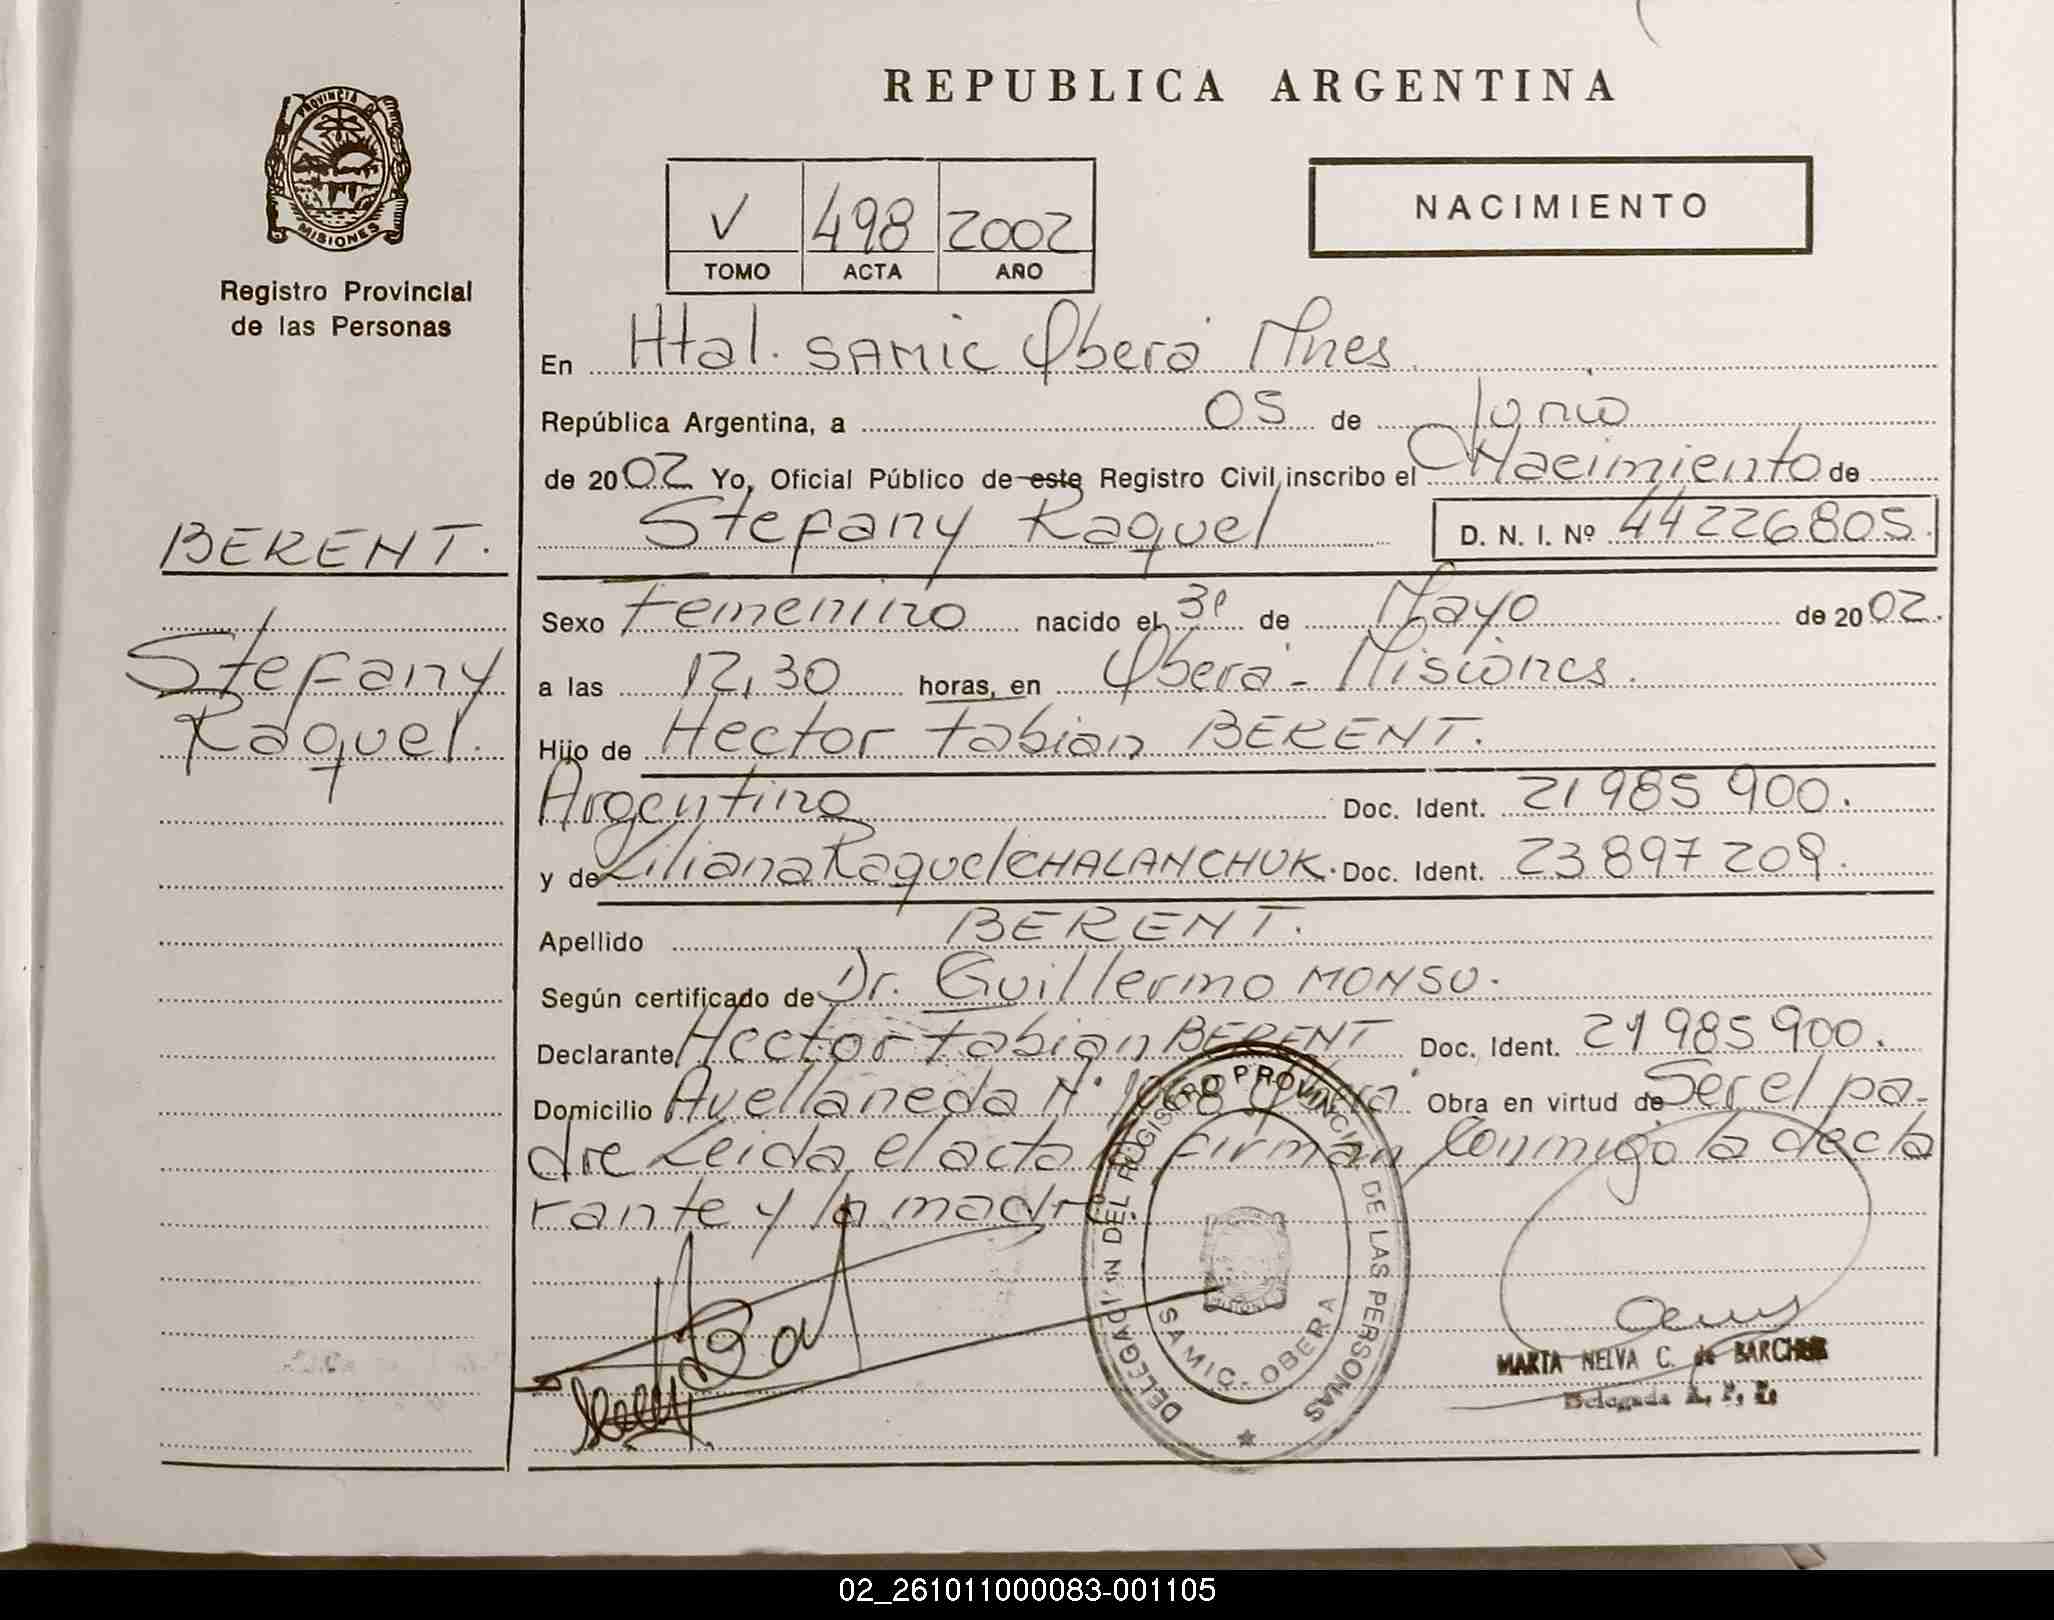 PROVINCIA DE
MISIONES
Registro Provincial
de las Personas
BERENT.
Stefany
Raquel.
REPUBLICA ARGENTINA
V 498 2002
TOMO ACTA AÑO
NACIMIENTO
En Htal. SAMIC Oberá Mnes
República Argentina, a 05 de Junio
de 2002 Yo, Oficial Público de este Registro Civil inscribo el Nacimiento de
Stefany Raquel D. N. I. Nº 44226805.
Sexo Femenino nacido el 31 de Mayo de 2002.
a las 12,30 horas, en Oberá - Misiones.
Hijo de Hector Fabian BERENT.
Argentino Doc. Ident. 21985900.
y de Liliana Raquel CHALANCHUK. Doc. Ident. 23897209.
Apellido BERENT.
Según certificado de Dr. Guillermo MONSU.
Declarante Hector Fabian BERENT Doc. Ident. 21985900.
Domicilio Avellaneda Nº 1068 Oberá Obra en virtud de Ser el pa-
dre Leida el acta firman conmigo la decla
rante y la madre.
DELEGACION DEL REGISTRO PROVINCIAL DE LAS PERSONAS
SAMIC - OBERA
MARTA NELVA C. de BARCHUK
Delegada R. P. P.
02_261011000083-001105